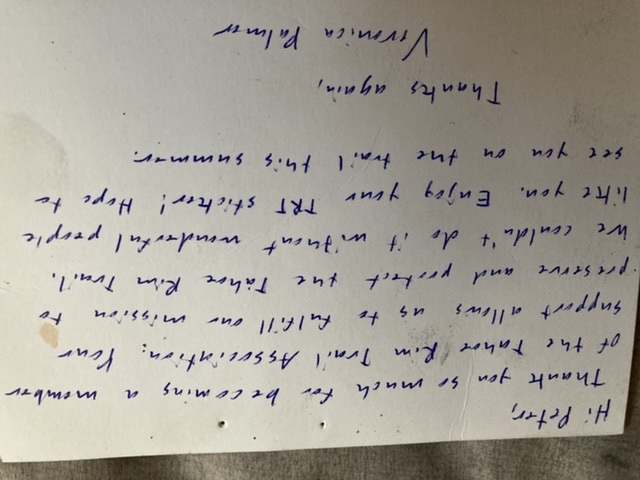 Hi Peter,
Thank you so much for becoming a member
of the Tahoe Rim Trail Association. Your
support allows us to fulfill our mission to
preserve and protect the Tahoe Rim Trail.
We couldn't do it without wonderful people
like you. Enjoy your TRT sticker! Hope to
see you on the trail this summer.
Thanks again,
Veronica Palmer